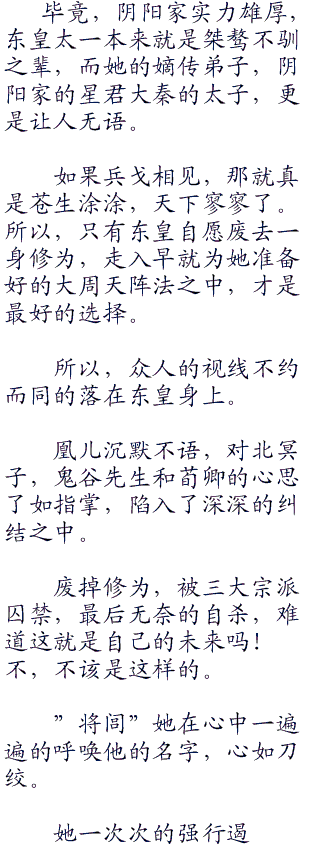 毕竟，阴阳家实力雄厚，
东皇太一本来就是桀骜不驯
之辈，而她的嫡传弟子，阴
阳家的星君大秦的太子，更
是让人无语。
如果兵戈相见，那就真
是苍生涂涂，天下寥寥了。
所以，只有东皇自愿废去一
身修为，走入早就为她准备
好的大周天阵法之中，才是
最好的选择。
所以，众人的视线不约
而同的落在东皇身上。
凰儿沉默不语，对北冥
子，鬼谷先生和荀卿的心思
了如指掌，陷入了深深的纠
结之中。
废掉修为，被三大宗派
囚禁，最后无奈的自杀，难
道这就是自己的未来吗！
不，不该是这样的。
”将闾”她在心中一遍
遍的呼唤他的名字，心如刀
绞。
她一次次的强行遏